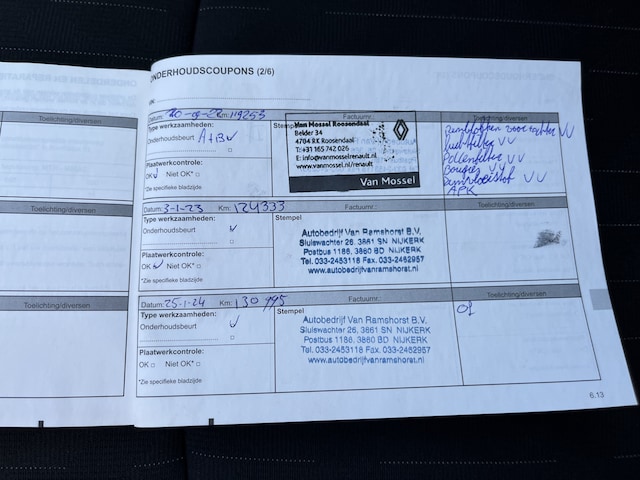 ONDERHOUDSCOUPONS (2/6)
Toelichting/diversen
Km: 119253
Factuurnr.:
Toelichting/diversen
Type werkzaamheden:
Onderhoudsbeurt A+B
Plaatwerkcontrole:
OK Niet OK*
*Zie specifieke bladzijde
Van Mossel Roosendaal
Belder 34
4704 RK Roosendaal
T: +31 165 742 026
E: info@vanmosselrenault.nl
www.vanmosselrenault.nl/renault
Van Mossel
Luchtfilter
Pollenfilter
Bougies
Remvloeistof
APK
Toelichting/diversen
Datum: 3-1-23 Km: 124333
Factuurnr.:
Toelichting/diversen
Type werkzaamheden:
Onderhoudsbeurt
Plaatwerkcontrole:
OK Niet OK*
*Zie specifieke bladzijde
Stempel
Autobedrijf Van Ramshorst B.V.
Sluiswachter 26, 3861 SN NIJKERK
Postbus 1186, 3860 BD NIJKERK
Tel. 033-2453118 Fax. 033-2462957
www.autobedrijfvanramshorst.nl
Toelichting/diversen
Datum: 25-1-24 Km: 130995
Factuurnr.:
Toelichting/diversen
Type werkzaamheden:
Onderhoudsbeurt
Plaatwerkcontrole:
OK Niet OK*
*Zie specifieke bladzijde
Stempel
Autobedrijf Van Ramshorst B.V.
Sluiswachter 26, 3861 SN NIJKERK
Postbus 1186, 3860 BD NIJKERK
Tel. 033-2453118 Fax. 033-2462957
www.autobedrijfvanramshorst.nl
6.13